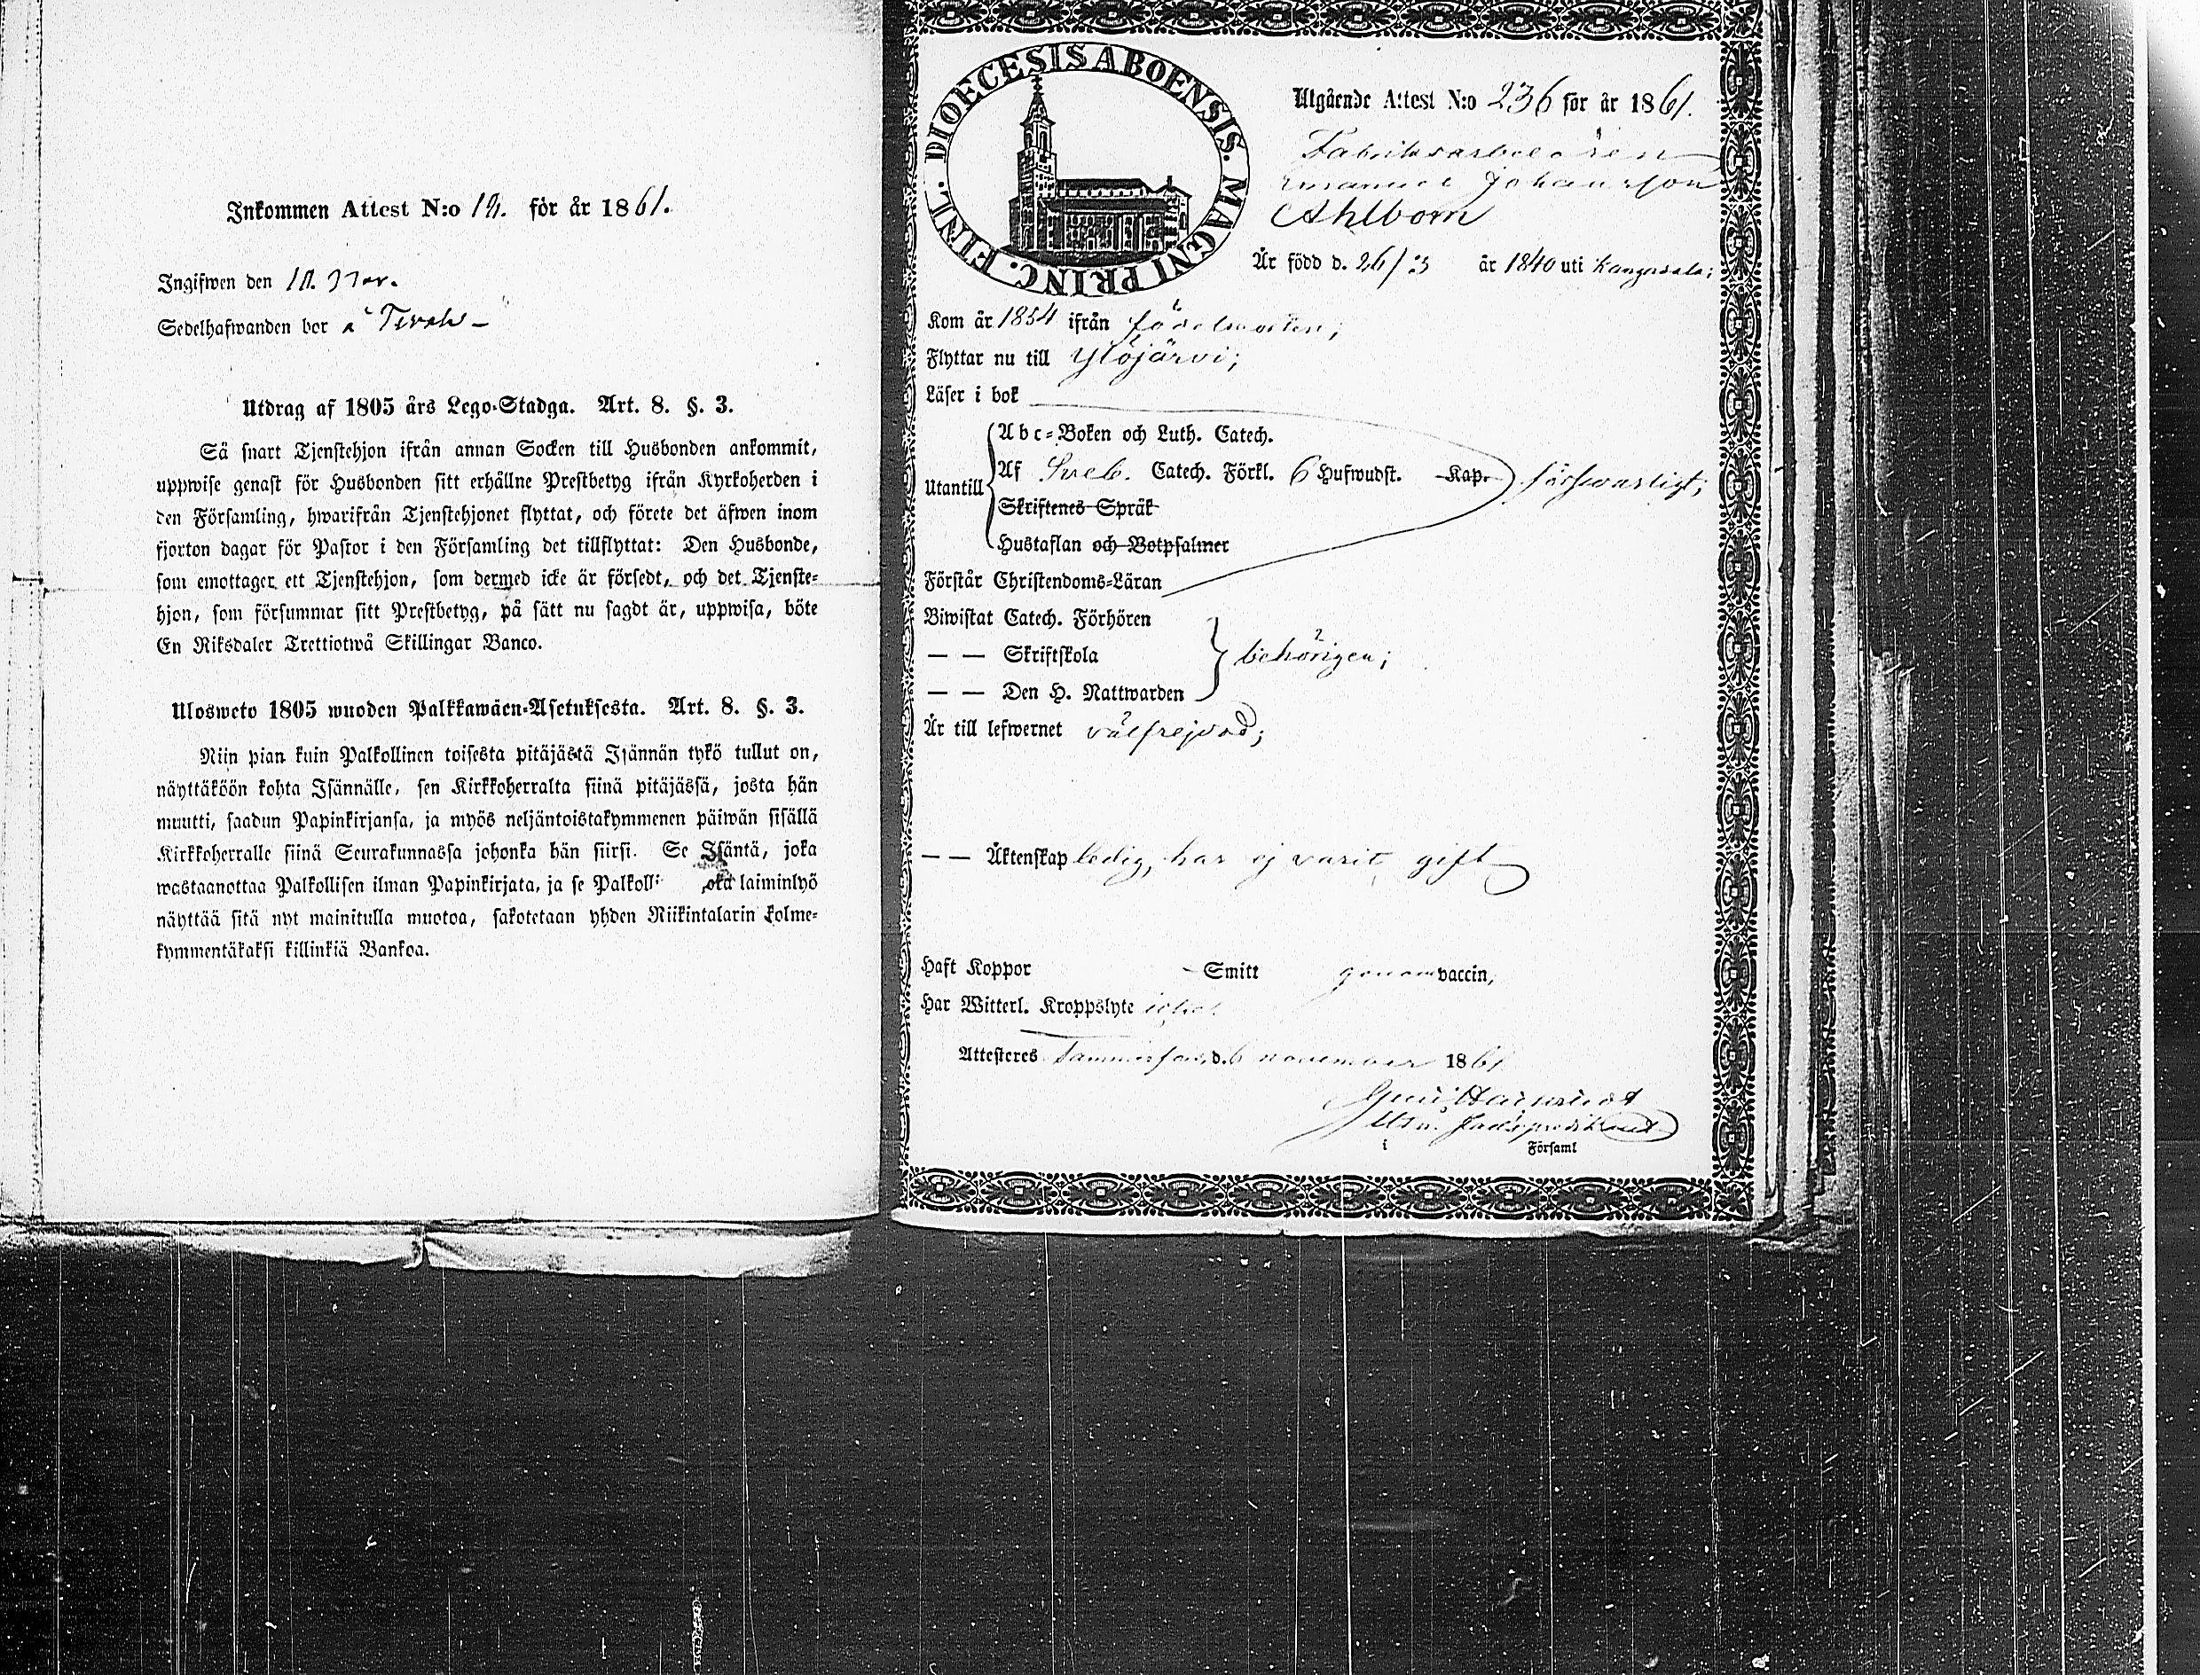 Inkommen Attest N:o för år 1861.
Ingifwen den Nov.
Sedelhafwanden bor å
Utdrag af 1805 års Lego-Stadga. Art. 8. §. 3.
Så snart Tjenstehjon ifrån annan Socken till Husbonden ankommit,
uppwise genast för Husbonden sitt erhållne Prestbetyg ifrån Kyrkoherden i
den Församling, hwarifrån Tjenstehjonet flyttat, och förete det äfwen inom
fjorton dagar för Pastor i den Församling det tillflyttat: Den Husbonde,
som emottager ett Tjenstehjon, som dermed icke är försedt, och det Tjenste-
hjon, som försummar sitt Prestbetyg, på sätt nu sagdt är, uppwisa, böte
En Riksdaler Trettiotwå Skillingar Banco.
Ulosweto 1805 wuoden Palkkawäen-Asetuksesta. Art. 8. §. 3.
Niin pian kuin Palkollinen toisesta pitäjästä Isännän tykö tullut on,
näyttäköön kohta Isännälle, sen Kirkkoherralta siinä pitäjässä, josta hän
muutti, saadun Papinkirjansa, ja myös neljäntoistakymmenen päiwän sisällä
Kirkkoherralle siinä Seurakunnassa johonka hän siirsi. Se Isäntä, joka
wastaanottaa Palkollisen ilman Papinkirjata, ja se Palkolli oka laiminlyö
näyttää sitä nyt mainitulla muotoa, sakotetaan yhden Riikintalarin kolme-
kymmentäkaksi killinkiä Bankoa.
DIOECESIS ABOENSIS. MAGNI PRINC. FINL.
Utgående Attest N:o 236 för år 1861.
Fabriksarbetaren
Emanuel Johansson
Ahlbom
Är född d. 26/3 år 1840 uti Kangasala;
Kom år 1854 ifrån födelseorten;
Flyttar nu till Ylöjärvi;
Läser i bok
Abc-Boken och Luth. Catech.
Utantill Af Sveb. Catech. Förkl. 6 Hufwudst. Kap. försvarligt;
Skriftenes Språk
Hustaflan och Botpsalmer
Förstår Christendoms-Läran
Biwistat Catech. Förhören
— — Skriftskola behörigen;
— — Den H. Nattwarden
Är till lefwernet välfrejdad;
— — Äktenskap ledig, har ej varit gift
Haft Koppor - Smitt genom vaccin,
Har Witterl. Kroppslyte icke
Attesteres Tammerfors d. 6 november 1861
i Församl